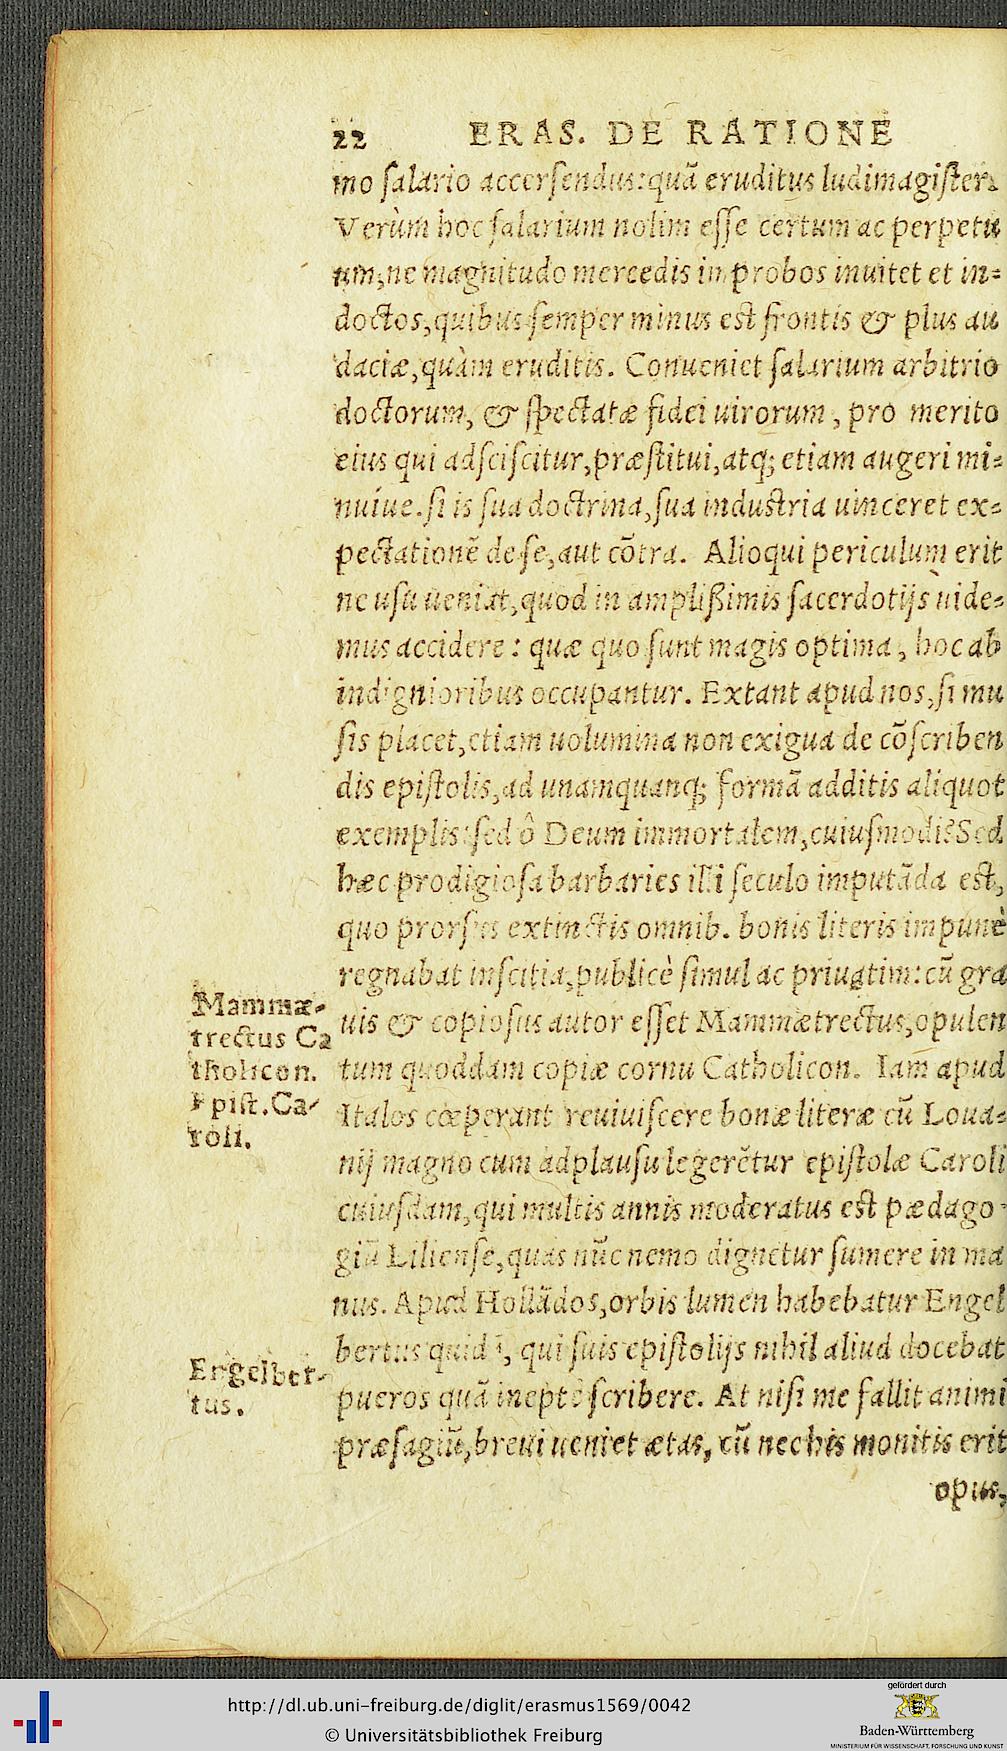 22 ERAS. DE RATIONE
mo ſalario accerſendus: quã eruditus ludimagiſter.
Verùm hoc ſalarium nolim eſſe certum ac perpetu
um, ne magnitudo mercedis improbos inuitet et in=
doctos, quibus ſemper minus eſt frontis & plus au
daciæ, quàm eruditis. Conueniet ſalarium arbitrio
doctorum, & ſpectatæ fidei uirorum, pro merito
eius qui adſciſcitur, præſtitui, atq; etiam augeri mi=
nuíue. ſi is ſua doctrina, ſua induſtria uinceret ex=
pectationẽ de ſe, aut cõtra. Alioqui periculum erit
ne uſu ueniat, quod in ampliſſimis ſacerdotijs uide=
mus accidere: quæ quo ſunt magis optima, hoc ab
indignioribus occupantur. Extant apud nos, ſi mu
ſis placet, etiam uolumina non exigua de cõſcriben
dis epiſtolis, ad unamquanq; formã additis aliquot
exemplis: ſed ô Deum immortalem, cuiuſmodi? Sed
hæc prodigioſa barbaries illi ſeculo imputãda eſt,
quo prorſus extinctis omnib. bonis literis impunè
regnabat inſcitia, publicè ſimul ac priuatim: cũ gra
uis & copioſus autor eſſet Mammætrectus, opulen
tum quoddam copiæ cornu Catholicon. Iam apud
Italos cœperant reuiuiſcere bonæ literæ cũ Loua=
nij magno cum adplauſu legerẽtur epiſtolæ Caroli
cuiuſdam, qui multis annis moderatus eſt pædago-
giũ Lilienſe, quas nũc nemo dignetur ſumere in ma
nus. Apud Hollãdos, orbis lumen habebatur Engel
bertus quidã, qui ſuis epiſtolijs nihil aliud docebat
pueros quã ineptè ſcribere. At niſi me fallit animi
præſagiũ, breui ueniet ætas, cũ nec his monitis erit
opus,
Mammæ-
trectus Ca
tholicon.
Epiſt. Ca-
roli.
Engelber-
tus.
http://dl.ub.uni-freiburg.de/diglit/erasmus1569/0042
© Universitätsbibliothek Freiburg
gefördert durch
Baden-Württemberg
MINISTERIUM FÜR WISSENSCHAFT, FORSCHUNG UND KUNST